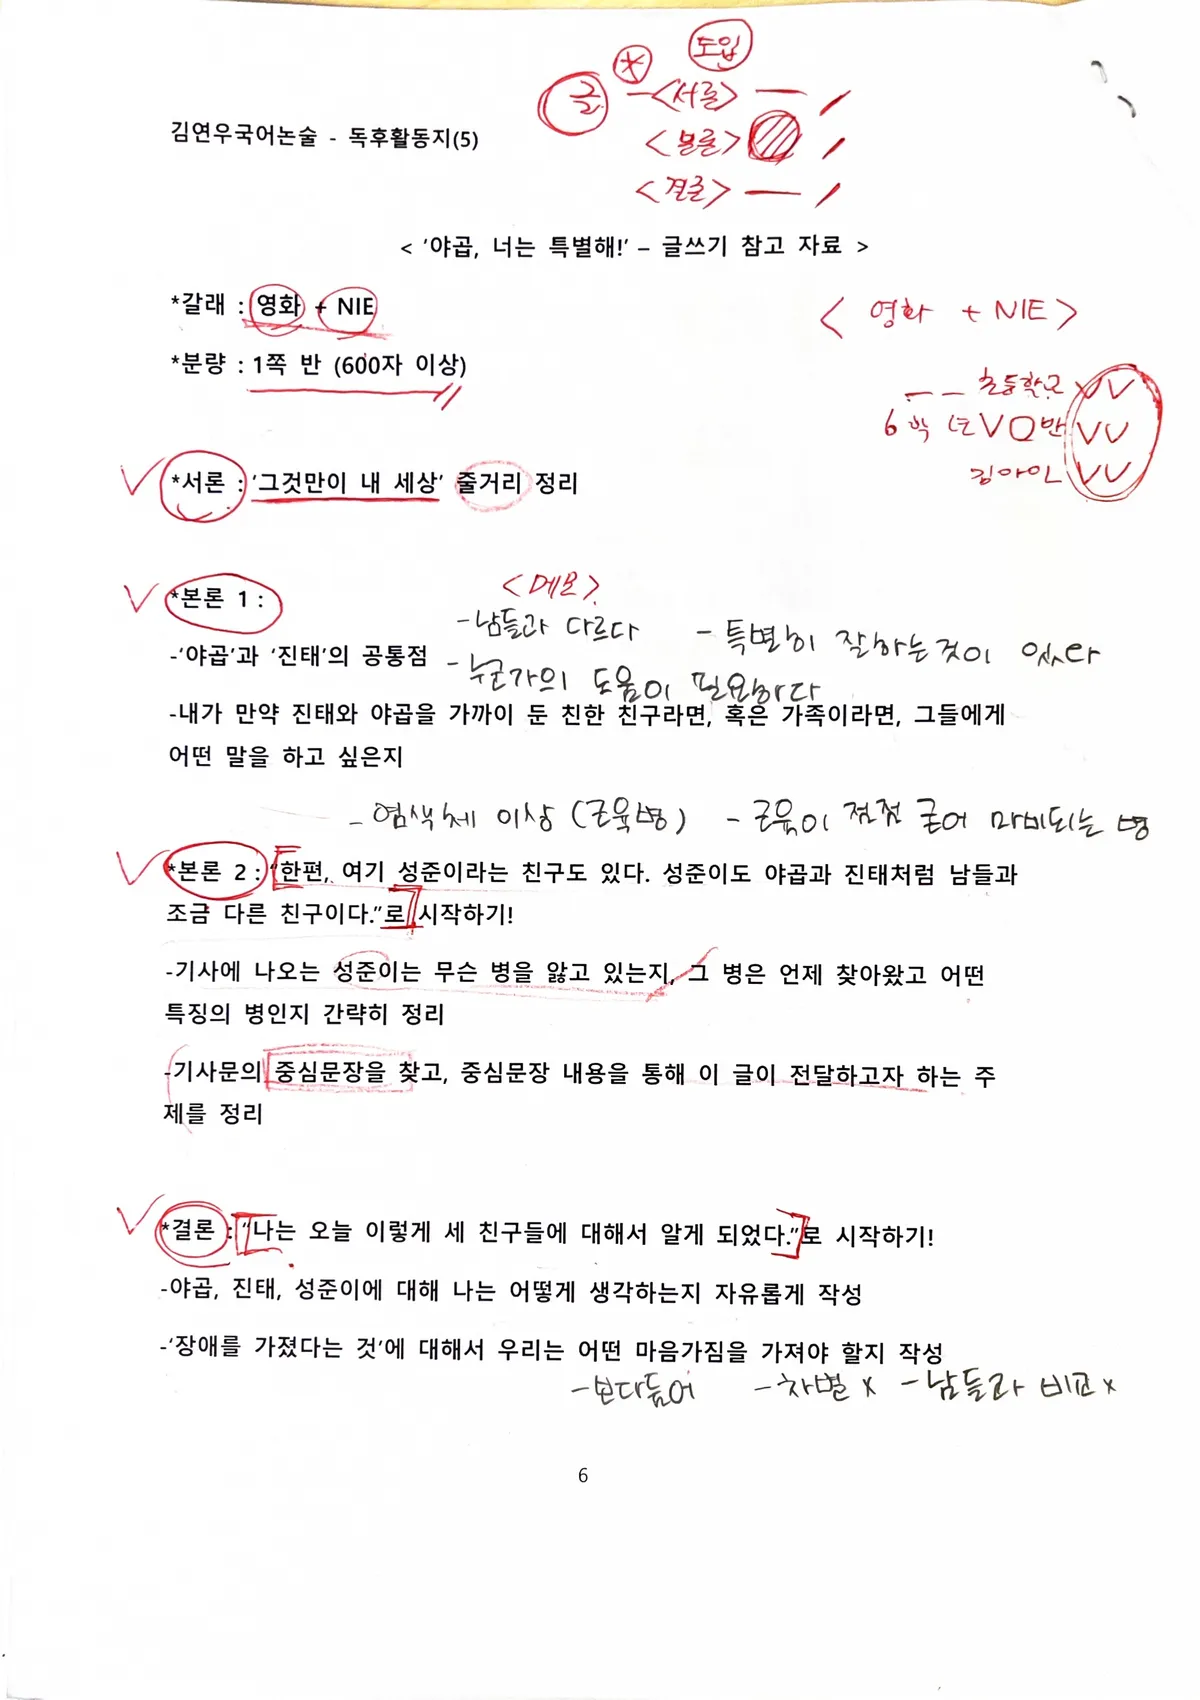 도입
글 * <서론>
<본론>
<결론>
김연우국어논술 - 독후활동지(5)
< '야곱, 너는 특별해!' – 글쓰기 참고 자료 >
*갈래 : 영화 + NIE
< 영화 + NIE >
*분량 : 1쪽 반 (600자 이상)
초등학교 ∨∨
6학년∨○반 ∨∨
김아인 ∨∨
*서론 : '그것만이 내 세상' 줄거리 정리
*본론 1 :
<메모>
-남들과 다르다 -특별히 잘하는것이 있다
-'야곱'과 '진태'의 공통점
-누군가의 도움이 필요하다
-내가 만약 진태와 야곱을 가까이 둔 친한 친구라면, 혹은 가족이라면, 그들에게
어떤 말을 하고 싶은지
-염색체 이상 (근육병) -근육이 점점 굳어 마비되는 병
*본론 2 : "한편, 여기 성준이라는 친구도 있다. 성준이도 야곱과 진태처럼 남들과
조금 다른 친구이다."로 시작하기!
-기사에 나오는 성준이는 무슨 병을 앓고 있는지, 그 병은 언제 찾아왔고 어떤
특징의 병인지 간략히 정리
-기사문의 중심문장을 찾고, 중심문장 내용을 통해 이 글이 전달하고자 하는 주
제를 정리
*결론 : "나는 오늘 이렇게 세 친구들에 대해서 알게 되었다."로 시작하기!
-야곱, 진태, 성준이에 대해 나는 어떻게 생각하는지 자유롭게 작성
-'장애를 가졌다는 것'에 대해서 우리는 어떤 마음가짐을 가져야 할지 작성
-보다듬어 -차별 x -남들과 비교 x
6